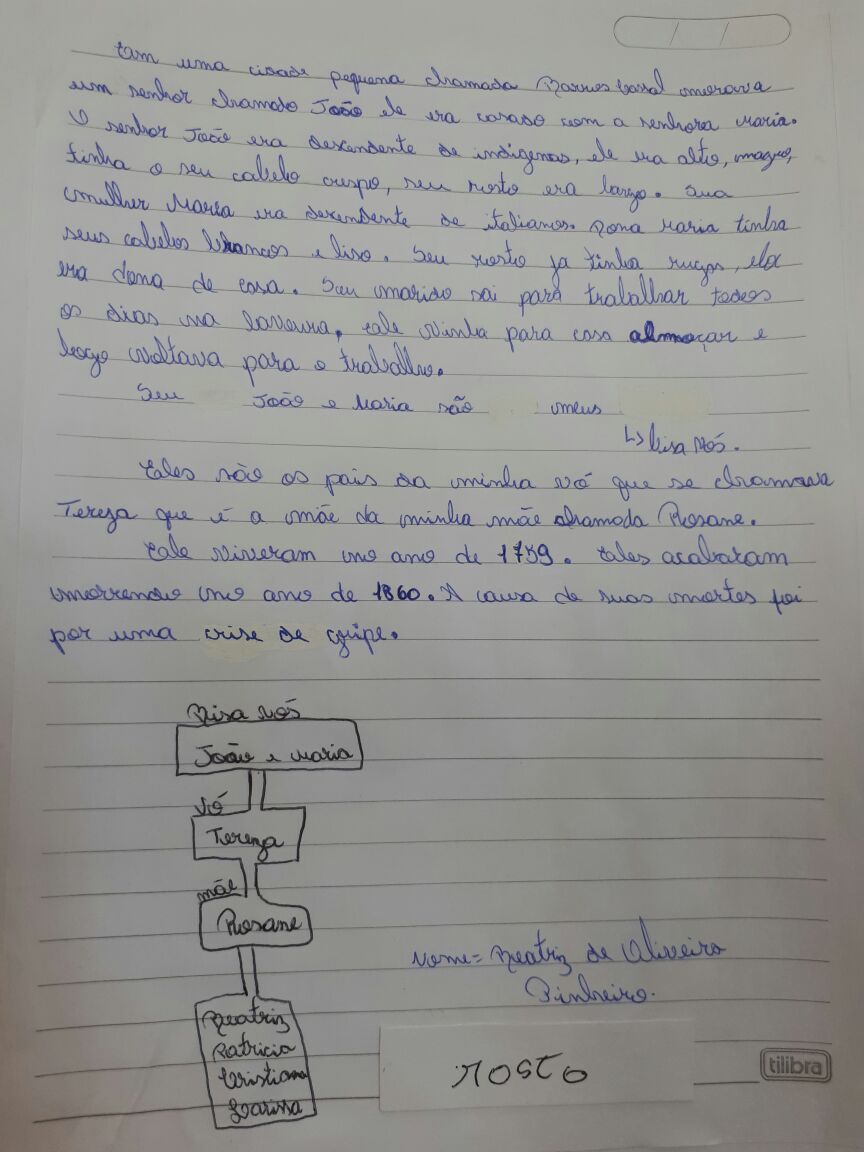 Em uma cidade pequena chamada Barros Cassal morava
um senhor chamado João ele era casado com a senhora Maria.
O senhor João era descendente de indigenas, ele era alto, magro,
tinha o seu cabelo crespo, seu rosto era largo. Sua
mulher Maria era decendente de italianos. Dona Maria tinha
seus cabelos brancos e liso. Seu rosto ja tinha rugas, ela
era dona de casa. Seu marido sai para trabalhar todos
os dias na lavoura, ele vinha para casa almoçar e
logo voltava para o trabalho.
Seu João e Maria são meus
↳ bisa vós.
Eles são os pais da minha vó que se chamava
Tereza que é a mãe da minha mãe chamada Rosane.
Ele viveram no ano de 1759. Eles acabaram
morrendo no ano de 1860. A causa de suas mortes foi
por uma crise de gripe.
Bisa vós
João e Maria
Vó
Tereza
mãe
Rosane
Beatriz
Patricia
Cristiana
Larissa
Nome= Beatriz de Oliveira
Pinheiro.
ROSTO
tilibra